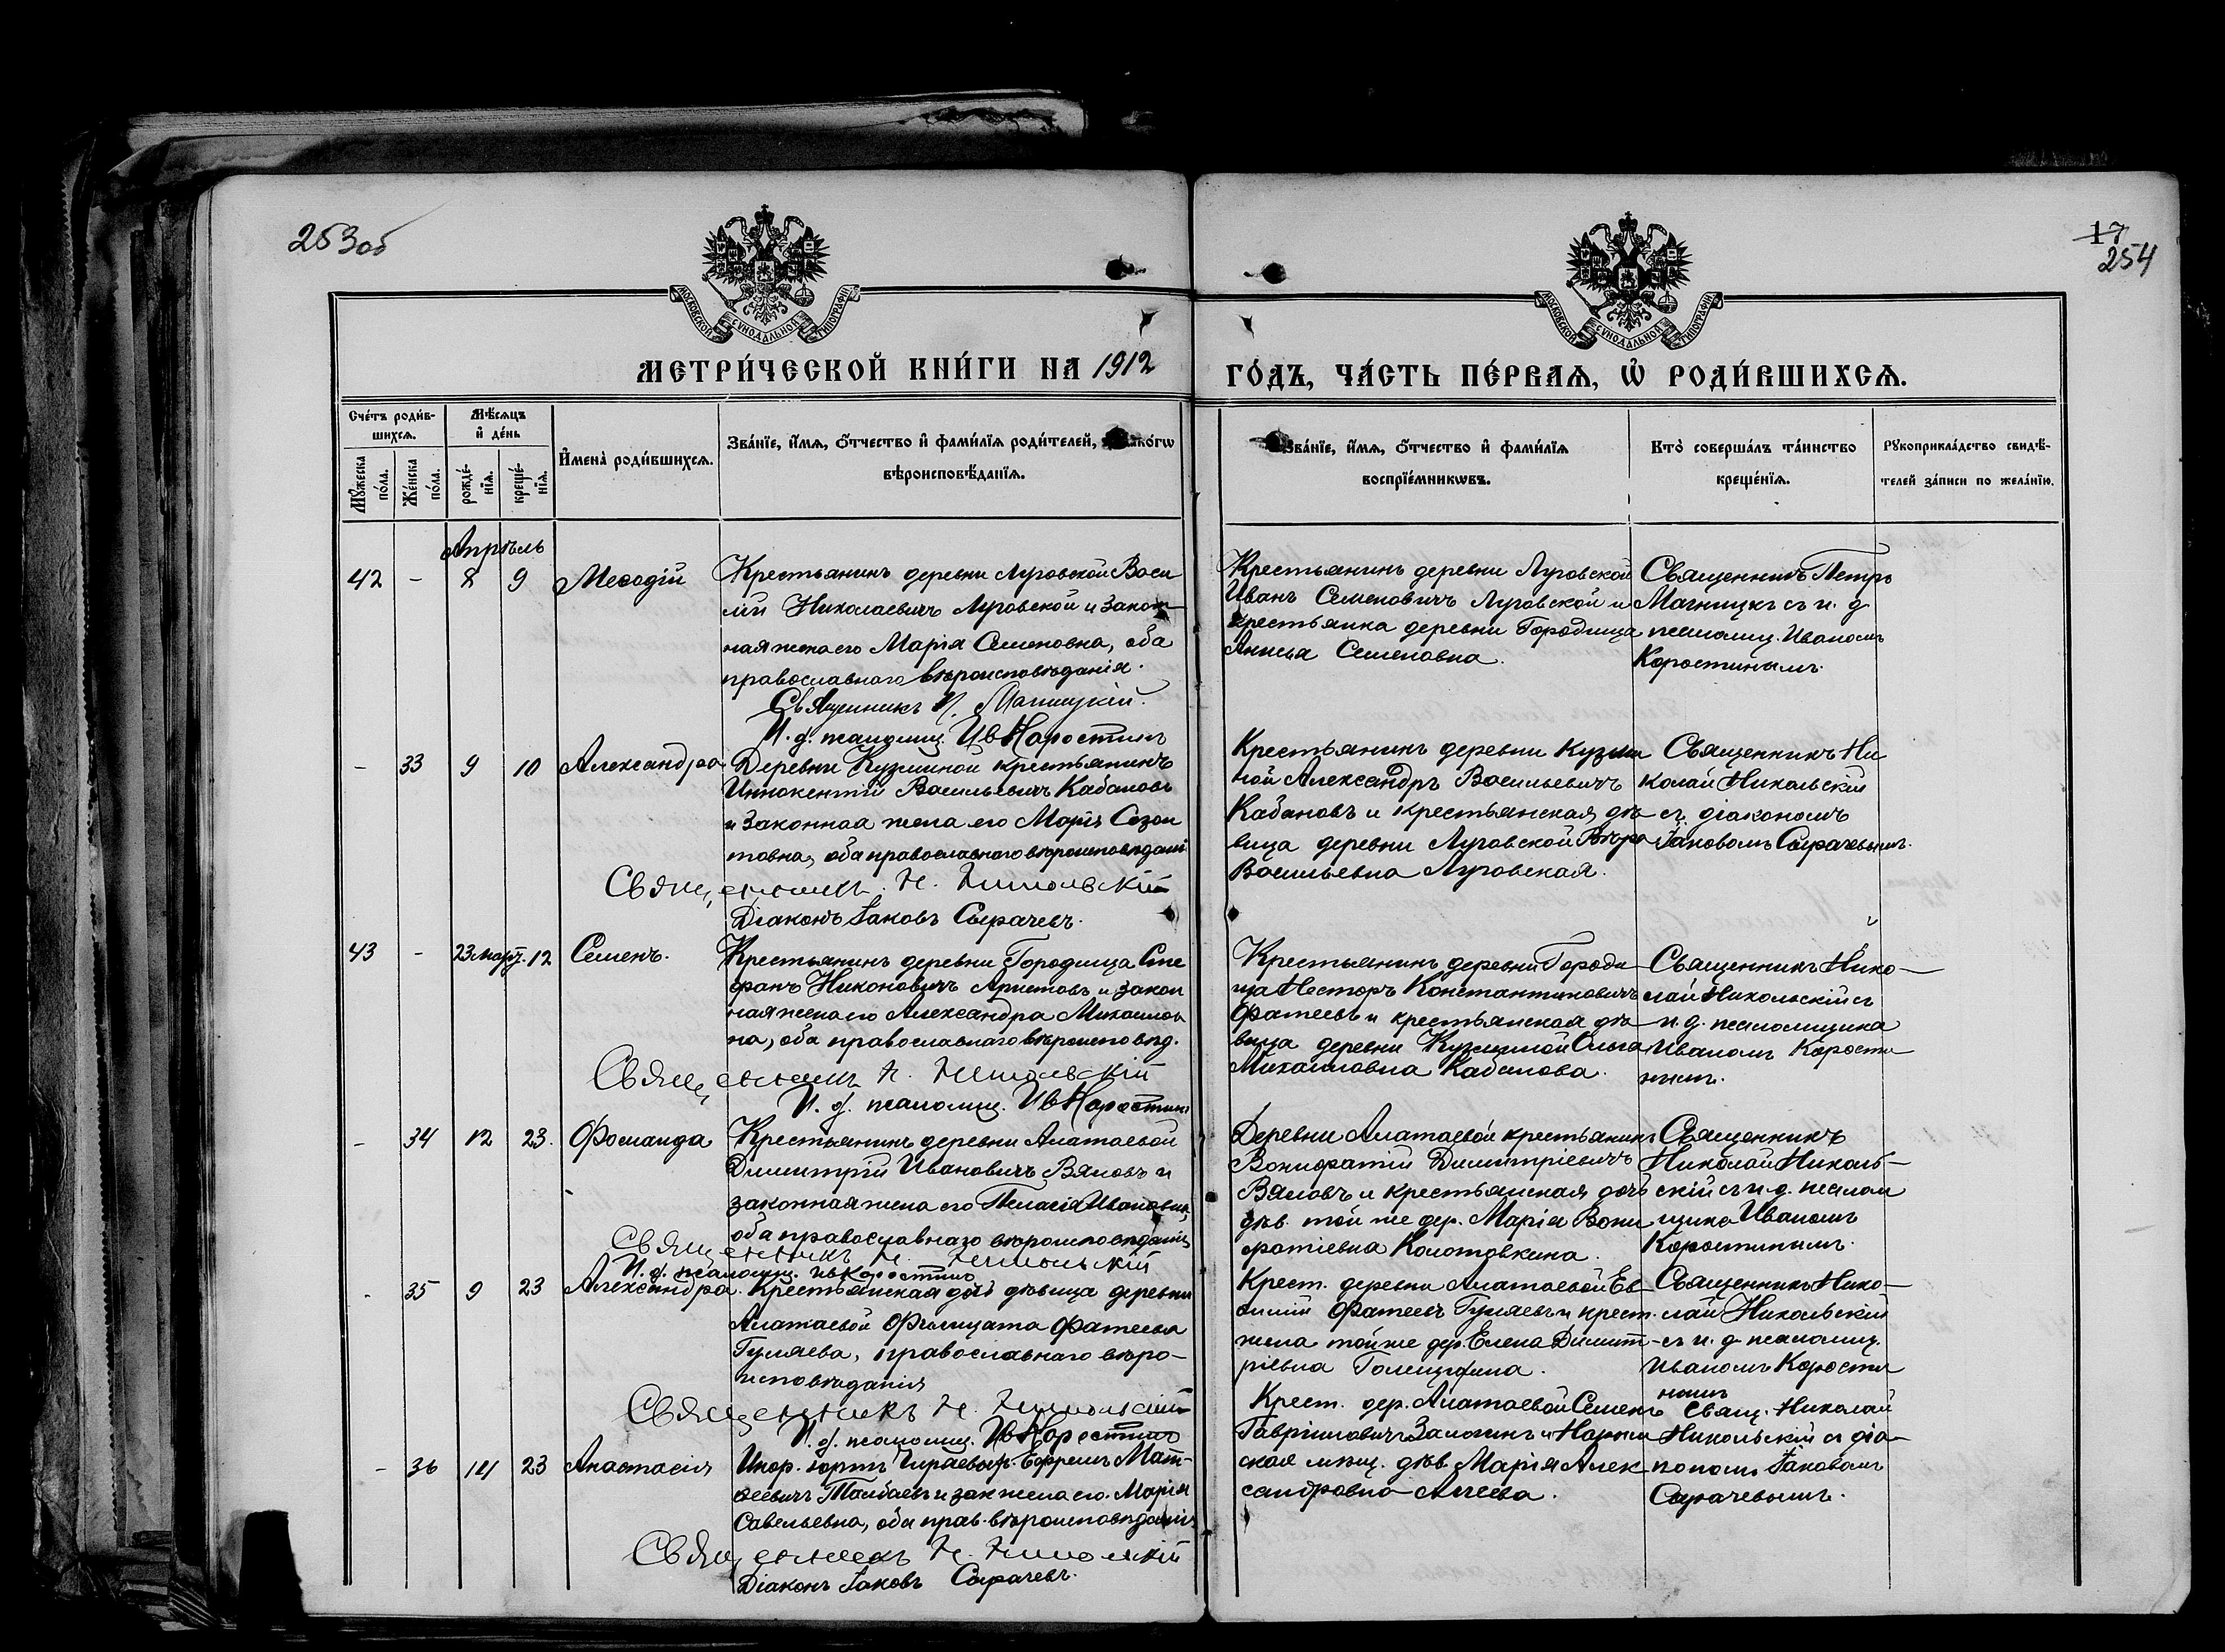 253об
17
254
МОСКОВСКОЙ СѴНОДАЛЬНОЙ ТИПОГРАФІИ
МОСКОВСКОЙ СѴНОДАЛЬНОЙ ТИПОГРАФІИ
МЕТРИ́ЧЕСКОЙ КНИ́ГИ НА 1912
ГО́ДЪ, ЧА́СТЬ ПЕ́РВАѦ, Ѡ҆ РОДИ́ВШИХСѦ.
Сче́тъ роди́в-
шихсѧ.
Мѣ́сѧцъ
и҆ де́нь
Мꙋ́жеска
по́ла.
Же́нска
по́ла.
рожде́-
нїѧ.
креще́-
нїѧ.
И҆мена̀ роди́вшихсѧ.
Зва́нїе, и҆́мѧ, ѻ҆́тчество и҆ фами́лїѧ роди́телей,
вѣроисповѣ́данїѧ.
Зва́нїе, и҆́мѧ, ѻ҆́тчество и҆ фами́лїѧ
воспрїе́мникѡвъ.
Кто̀ соверша́лъ та́инство
креще́нїѧ.
Рꙋкоприкла́дство свидѣ́-
телей за́писи по жела́нїю.
Апрѣль
42 - 8 9 Меѳодій
Крестьянинъ деревни Луговской Васи
лій Николаевичъ Луговской и закон
ная жена его Марія Семеновна, оба
православнаго вѣроисповѣданія.
Священникъ П. Магницкій.
И. д. псаломщ. Ив Коростинъ
Крестьянинъ деревни Луговской
Иванъ Семеновичъ Луговской и
крестьянка деревни Городища
Анисья Семеновна.
Священникъ Петръ
Магницкъ съ и. д
псаломщ. Иваномъ
Коростинымъ.
- 33 9 10 Александра
Деревни Кузминой крестьянинъ
Иннокентій Васильевичъ Кабановъ
и законная жена его Марія Созон
товна, оба православнаго вѣроисповѣданія
Священникъ Н. Никольскій
Діаконъ Іаковъ Сырачевъ.
Крестьянинъ деревни Кузми
ной Александръ Васильевичъ
Кабановъ и крестьянская дѣ
вица деревни Луговской Вѣра
Васильевна Луговская.
Священникъ Ни
колай Никольскій
съ діакономъ
Іаковомъ Сырачевымъ.
43 - 23 март. 12 Семенъ.
Крестьянинъ деревни Городища Сте
фанъ Никоновичъ Аристовъ и закон
ная жена его Александра Михаилов
на, оба православнаго вѣроисповѣд.
Священникъ Н. Никольскій
И. д. псаломщ. Ив Коростинъ
Крестьянинъ деревни Городи
ща Несторъ Константиновичъ
Фатеевъ и крестьянская дѣ
вица деревни Кузминой Ольга
Михаиловна Кабанова.
Священникъ Нико-
лай Никольскій съ
и. д. псаломщика
Иваномъ Корости
нымъ.
- 34 12 23. Фомаида
Крестьянинъ деревни Алатаевой
Димитрій Ивановичъ Вяловъ и
законная жена его Пелагія Ивановна,
оба православнаго вѣроисповѣданія
Священникъ Н. Никольскій
И. д. псаломщ. Ив Коростинъ
Деревни Алатаевой крестьянинъ
Вонифатій Димитріевичъ
Вяловъ и крестьянская дочь
дѣв. той же дер. Марія Вони
фатіевна Колотовкина.
Священникъ
Николай Николь-
скій съ и. д. псалом
щика Иваномъ
Коростинымъ.
- 35 9 23 Александра.
Крестьянская дочь дѣвица деревни
Алатаевой Филицата Фатеева
Гуляева, православнаго вѣро-
исповѣданія
Священникъ Н. Никольскій
И. д. псаломщ. Ив Коростинъ
Крест. деревни Алатаевой Ев
ѳимій Фатеевъ Гуляевъ и крест.
жена той же дер. Елена Димит-
ріевна Голещихина.
Священникъ Нико-
лай Никольскій
съ и. д. псаломщ.
Иваномъ Корости
нымъ
- 36 14 23 Анастасія
Инор. юртъ Чигаевых. Ефремъ Мат-
ѳеевичъ Талбаевъ и зак жена его Марія
Савельевна, оба прав. вѣроисповѣданія
Священникъ Н. Никольскій
Діаконъ Іаковъ Сырачевъ.
Крест. дер. Алатаевой Семенъ
Гавріиловичъ Залогинъ и Нарым
ская мѣщ. дѣв. Марія Алек
сандровна Алеева.
Свящ. Николай
Никольскій съ діа-
кономъ Іаковомъ
Сырачевымъ.